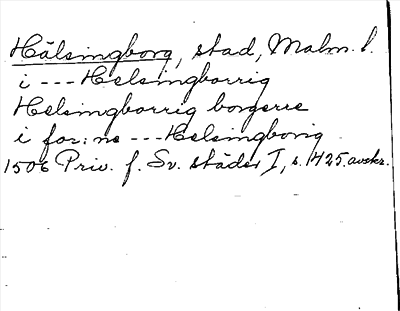 Hälsingborg, stad, Malm. l.
i --- Helsingborrig
Helsingborrig borgerre
i for:ne --- Helsingborig
1506 Priv. f. Sv. städer I, s. 1425. avskr.